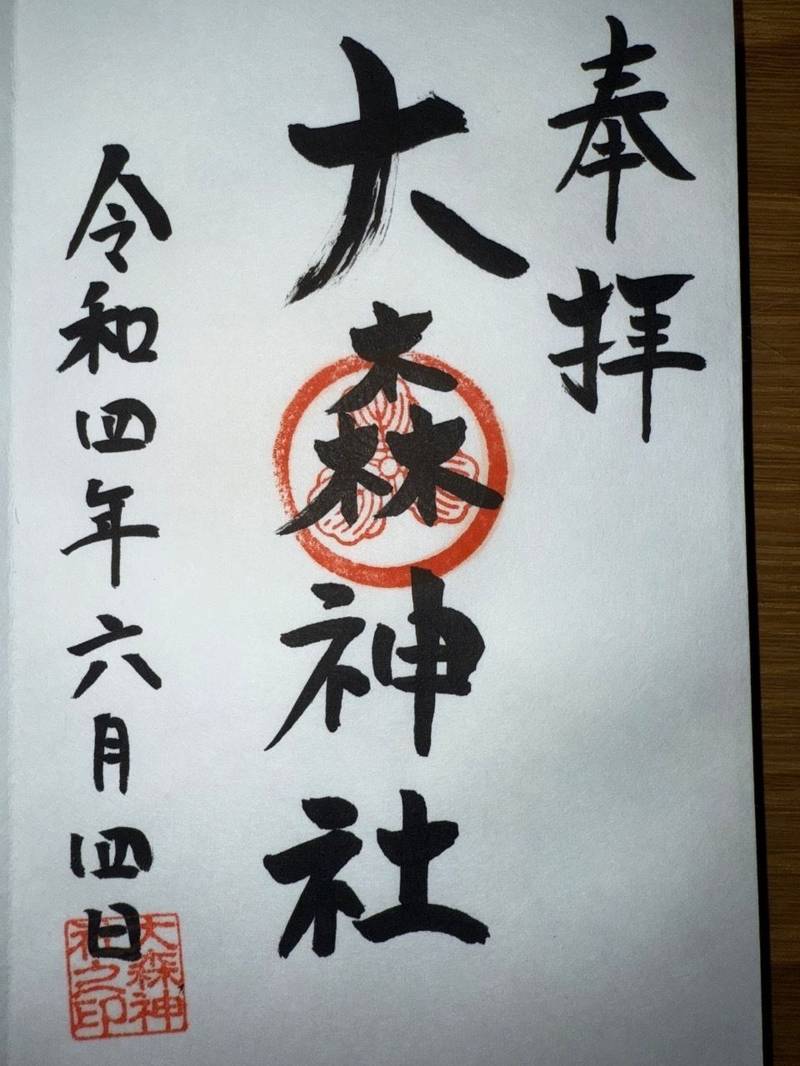 奉拝
大森神社
令和四年六月四日
大森神
社之印